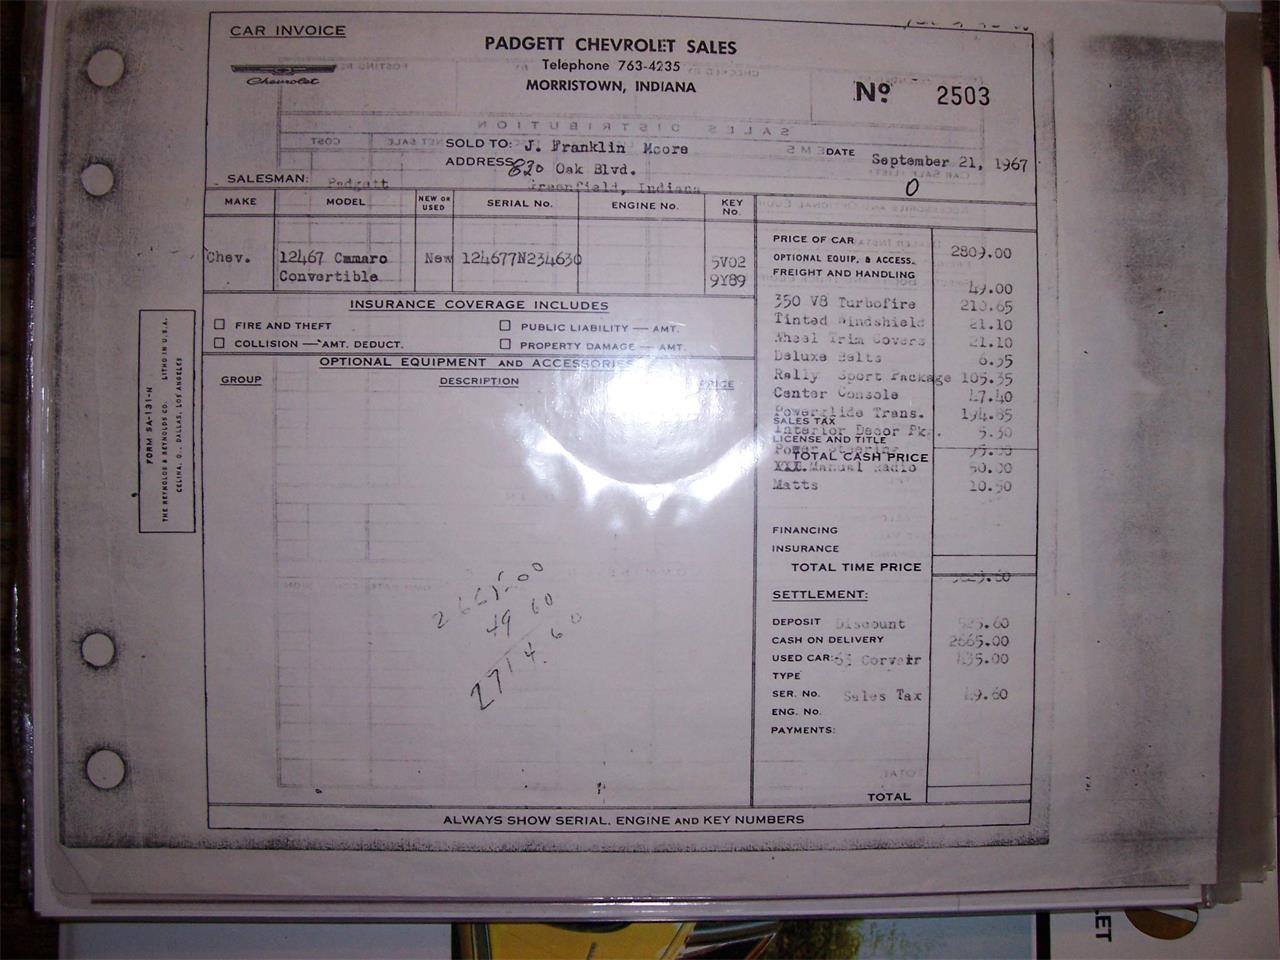 CAR INVOICE
PADGETT CHEVROLET SALES
Telephone 763-4235
MORRISTOWN, INDIANA
Chevrolet
Nº 2503
SALES DISTRIBUTION
SOLD TO: J. Franklin Moore
DATE September 21, 1967
ADDRESS 820 Oak Blvd.
Greenfield, Indiana
0
SALESMAN: Padgett
MAKE MODEL NEW OR USED SERIAL No. ENGINE No. KEY No.
Chev. 12467 Camaro New 124677N234630 5V02
Convertible 9Y89
INSURANCE COVERAGE INCLUDES
FIRE AND THEFT PUBLIC LIABILITY — AMT.
COLLISION — AMT. DEDUCT. PROPERTY DAMAGE — AMT.
OPTIONAL EQUIPMENT AND ACCESSORIES
GROUP DESCRIPTION PRICE
PRICE OF CAR 2809.00
OPTIONAL EQUIP. & ACCESS.
FREIGHT AND HANDLING 49.00
350 V8 Turbofire 210.65
Tinted Windshield 21.10
Wheel Trim Covers 21.10
Deluxe Belts
Rally Sport Package 105.35
Center Console 47.40
Powerglide Trans. 194.85
SALES TAX
Interior Decor Pk.
LICENSE AND TITLE
Power Steering
TOTAL CASH PRICE
Manual Radio 50.00
Matts 10.50
FINANCING
INSURANCE
TOTAL TIME PRICE
SETTLEMENT:
DEPOSIT Discount
CASH ON DELIVERY 2665.00
USED CAR: Corvair
TYPE
SER. No. Sales Tax 49.60
ENG. No.
PAYMENTS:
TOTAL
2665.00
49 60
2714.60
ALWAYS SHOW SERIAL, ENGINE AND KEY NUMBERS
FORM SA-131-N
THE REYNOLDS & REYNOLDS CO. LITHO IN U.S.A.
CELINA, O., DALLAS, LOS ANGELES
LET